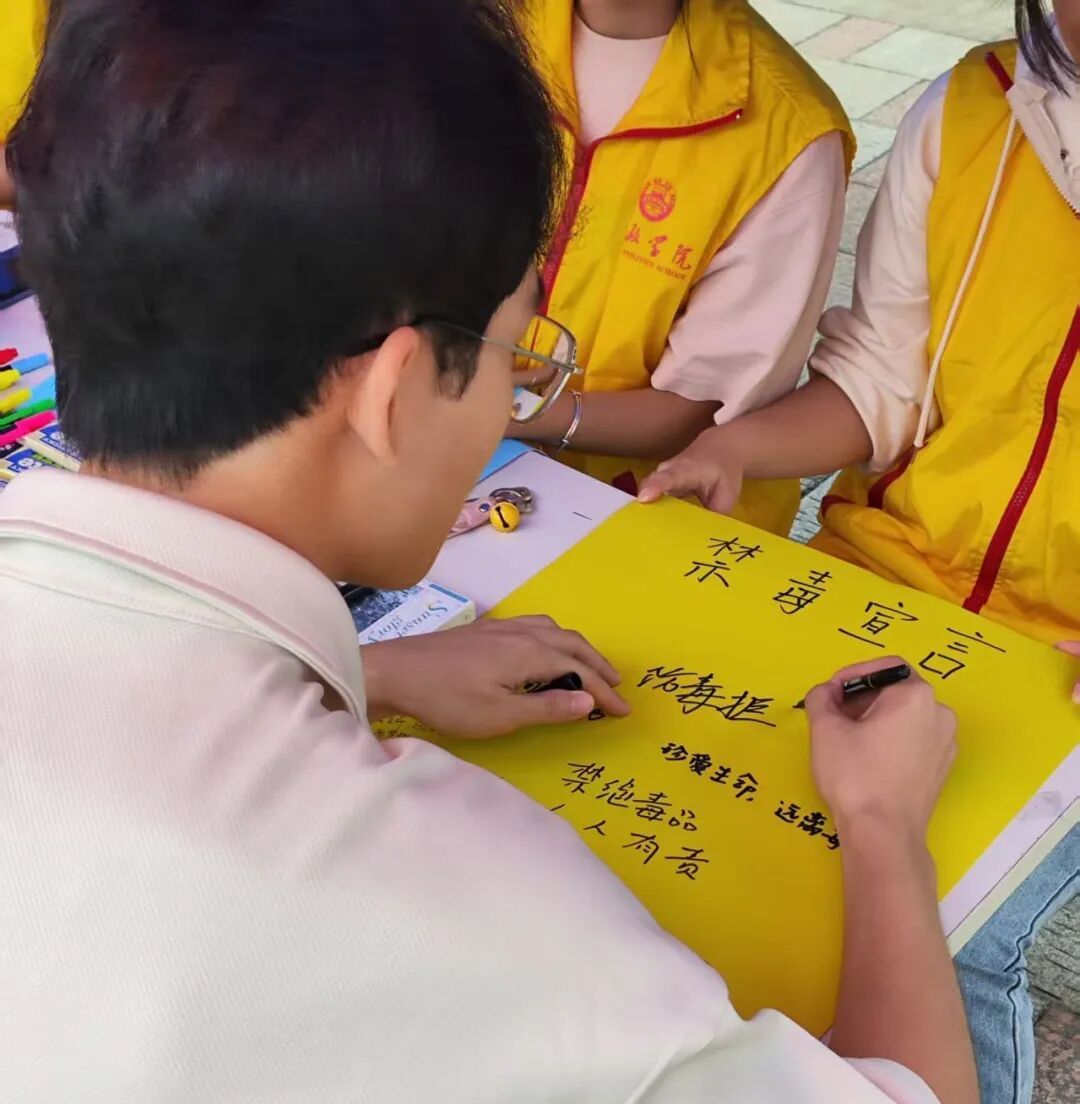 政学院
禁毒宣言
防毒拒
珍爱生命，远离毒
禁绝毒品
人人有责
Sunset